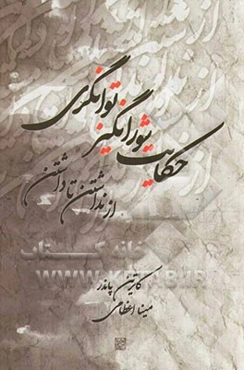 حکایت شورانگیز توانگری
از نداشتن تا داشتن
خانه کتاب
KETAB.IR
کاترین پاندر
مینا اعظامی